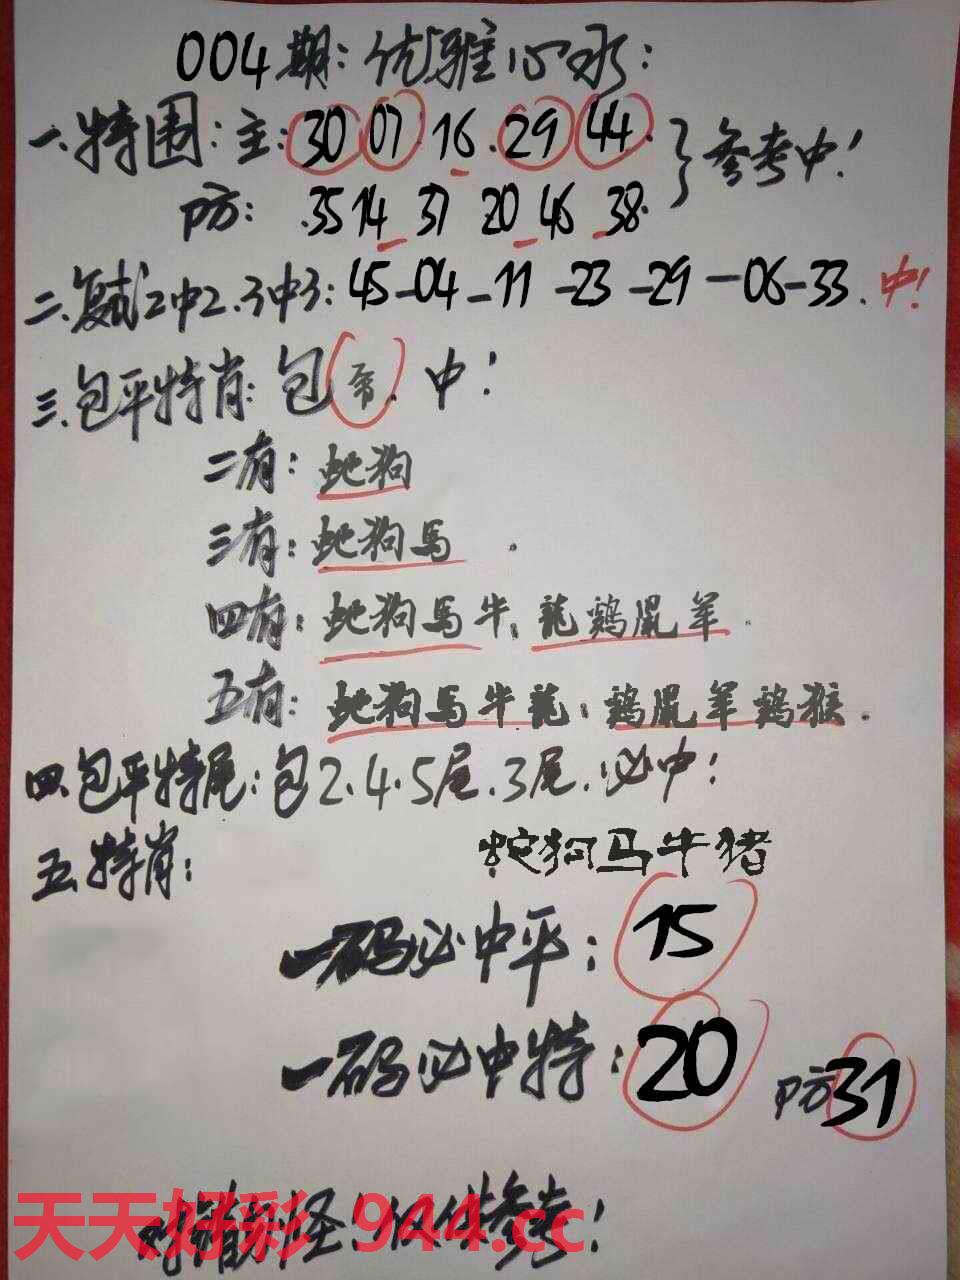 004期:优雅心水:
一.特围:主:30 07 16.29 44.}参考中!
防:.35 14 31 20 46 38.
二.复式2中2.3中3:45-04-11-23-29-06-33.中!
三.包平特肖:包 中!
二有:蛇狗
三有:蛇狗马.
四有:蛇狗馬牛;龍鷄鼠羊.
五有:蛇狗馬牛龍;鷄鼠羊鷄猴.
四.包平特尾:包2.4.5尾.3尾.必中!
五.特肖:蛇狗马牛猪
一码必中平:15
一码必中特:20 防31
天天好彩.944.cc
对错别怪!仅供参考!